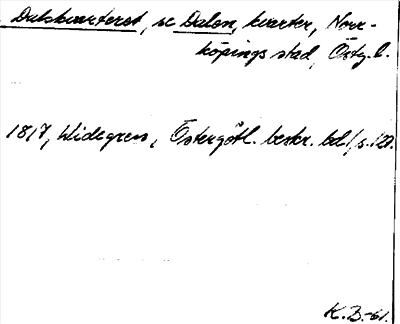 Dalskvarteret, se Dalen, kvarter, Norr-
köpings stad, Östg. l.
1817, Widegren, Östergötl. beskr. bd 1, s. 120.
K.B.-61.